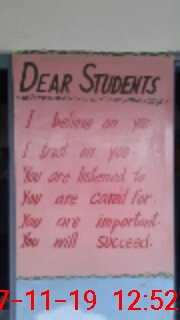 DEAR STUDENTS
I believe on you
I trust on you.
You are listened to
You are cared for.
You are important.
You will succeed.
7-11-19 12:52